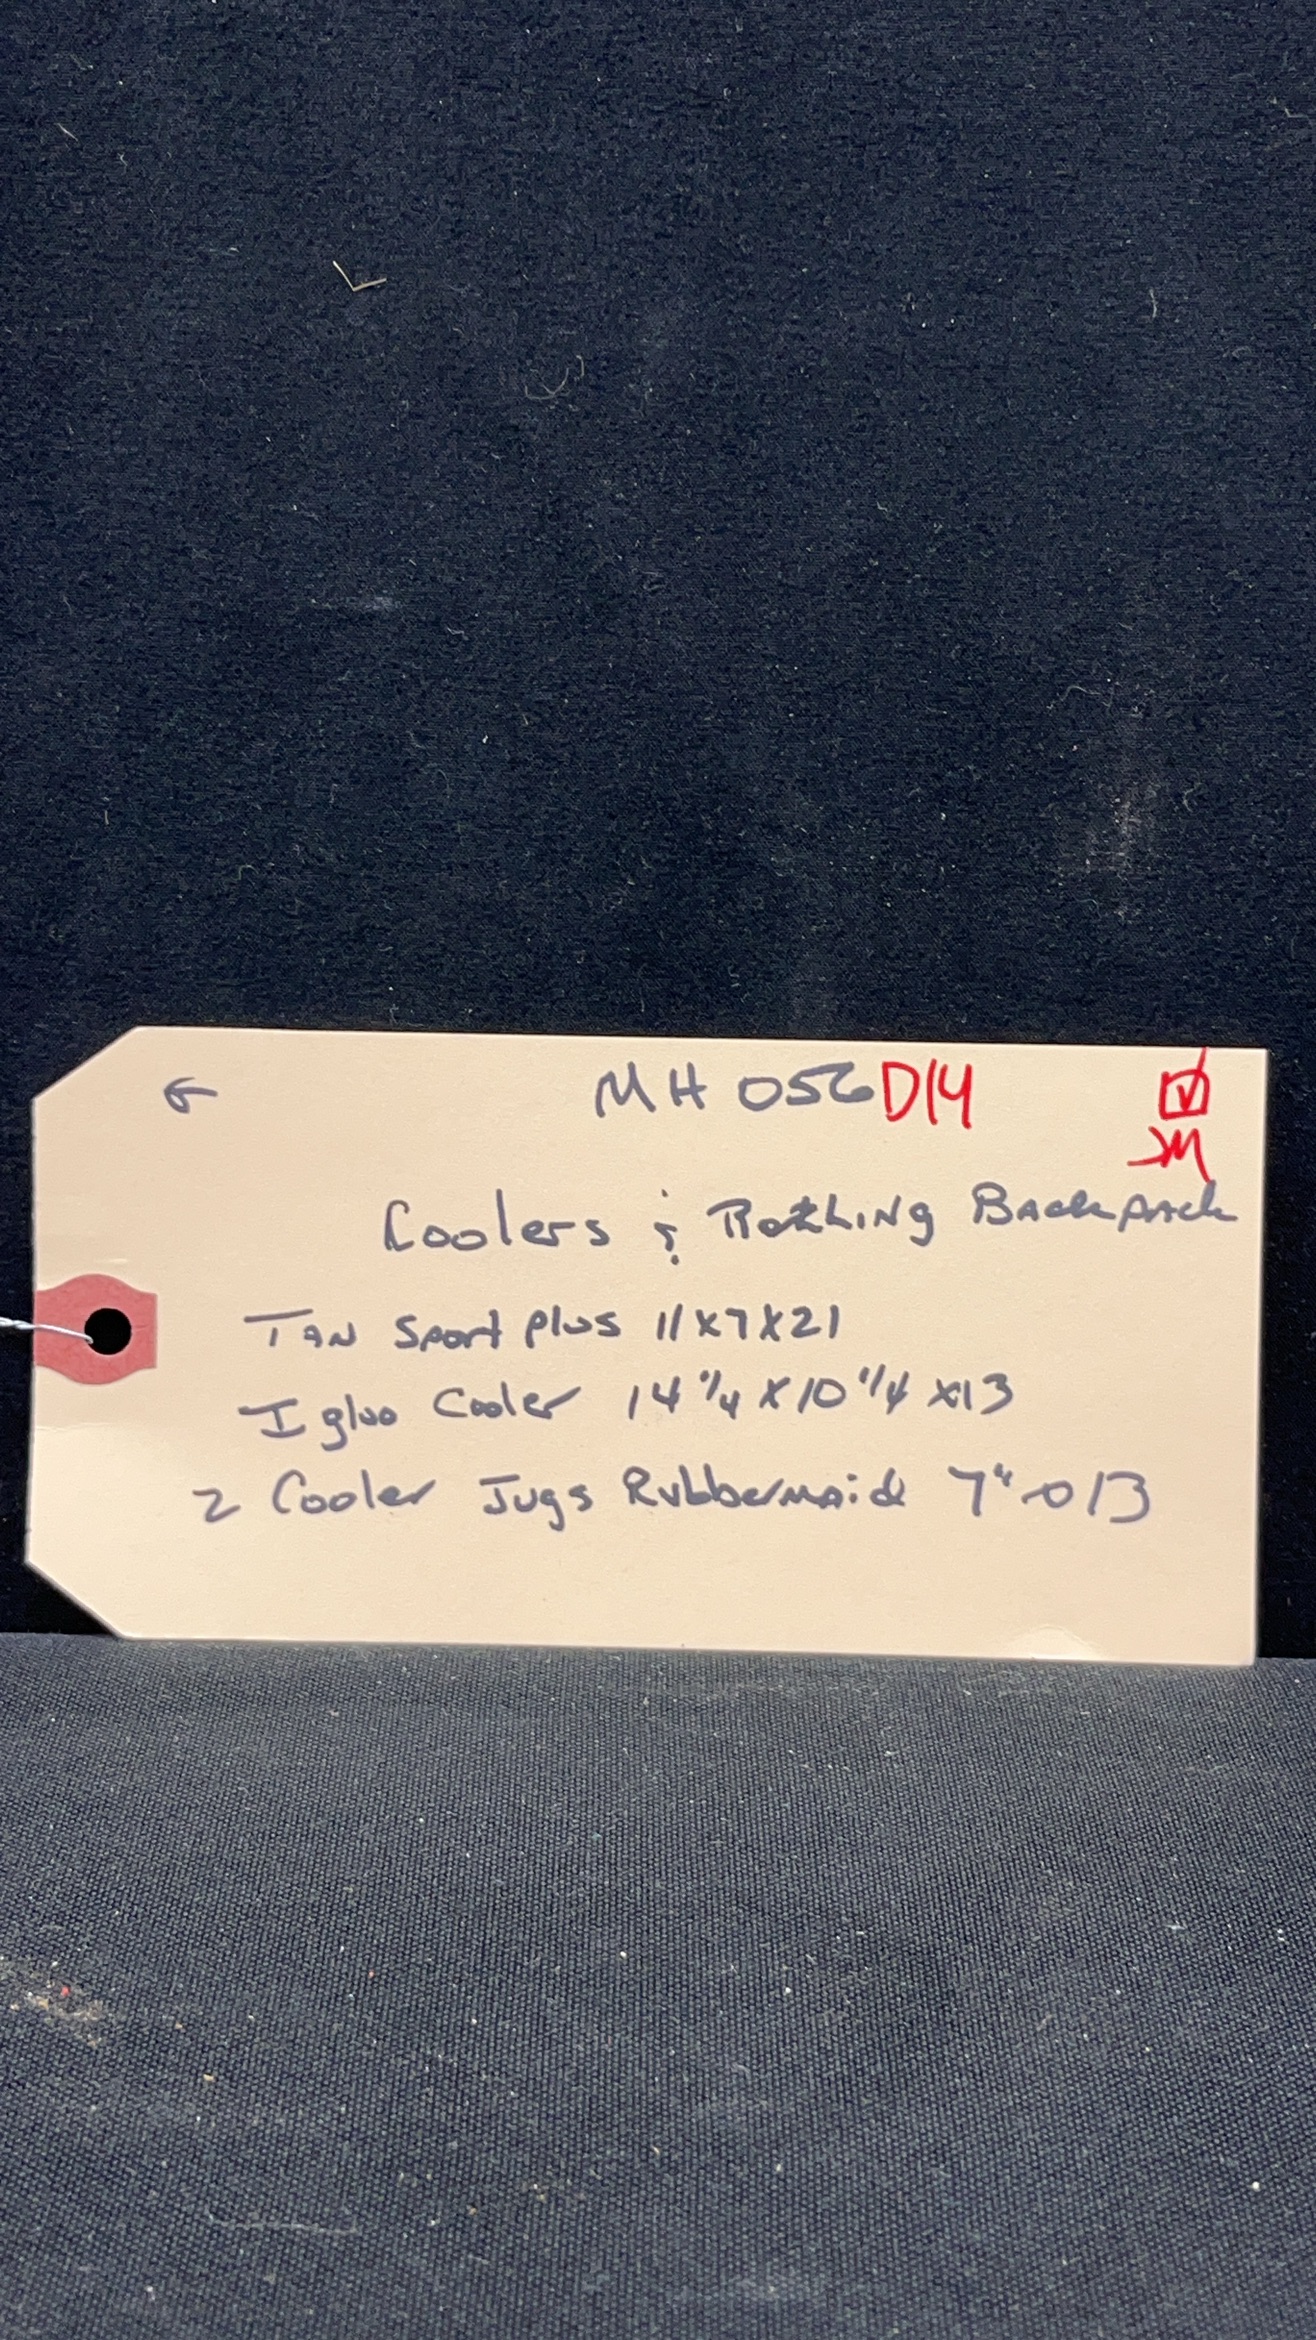 MH 056 D14
JM
Coolers & Rolling Backpack
TAN Sport Plus 11x7x21
Igloo Cooler 14 1/4 x 10 1/4 x13
2 Cooler Jugs Rubbermaid 7" 13